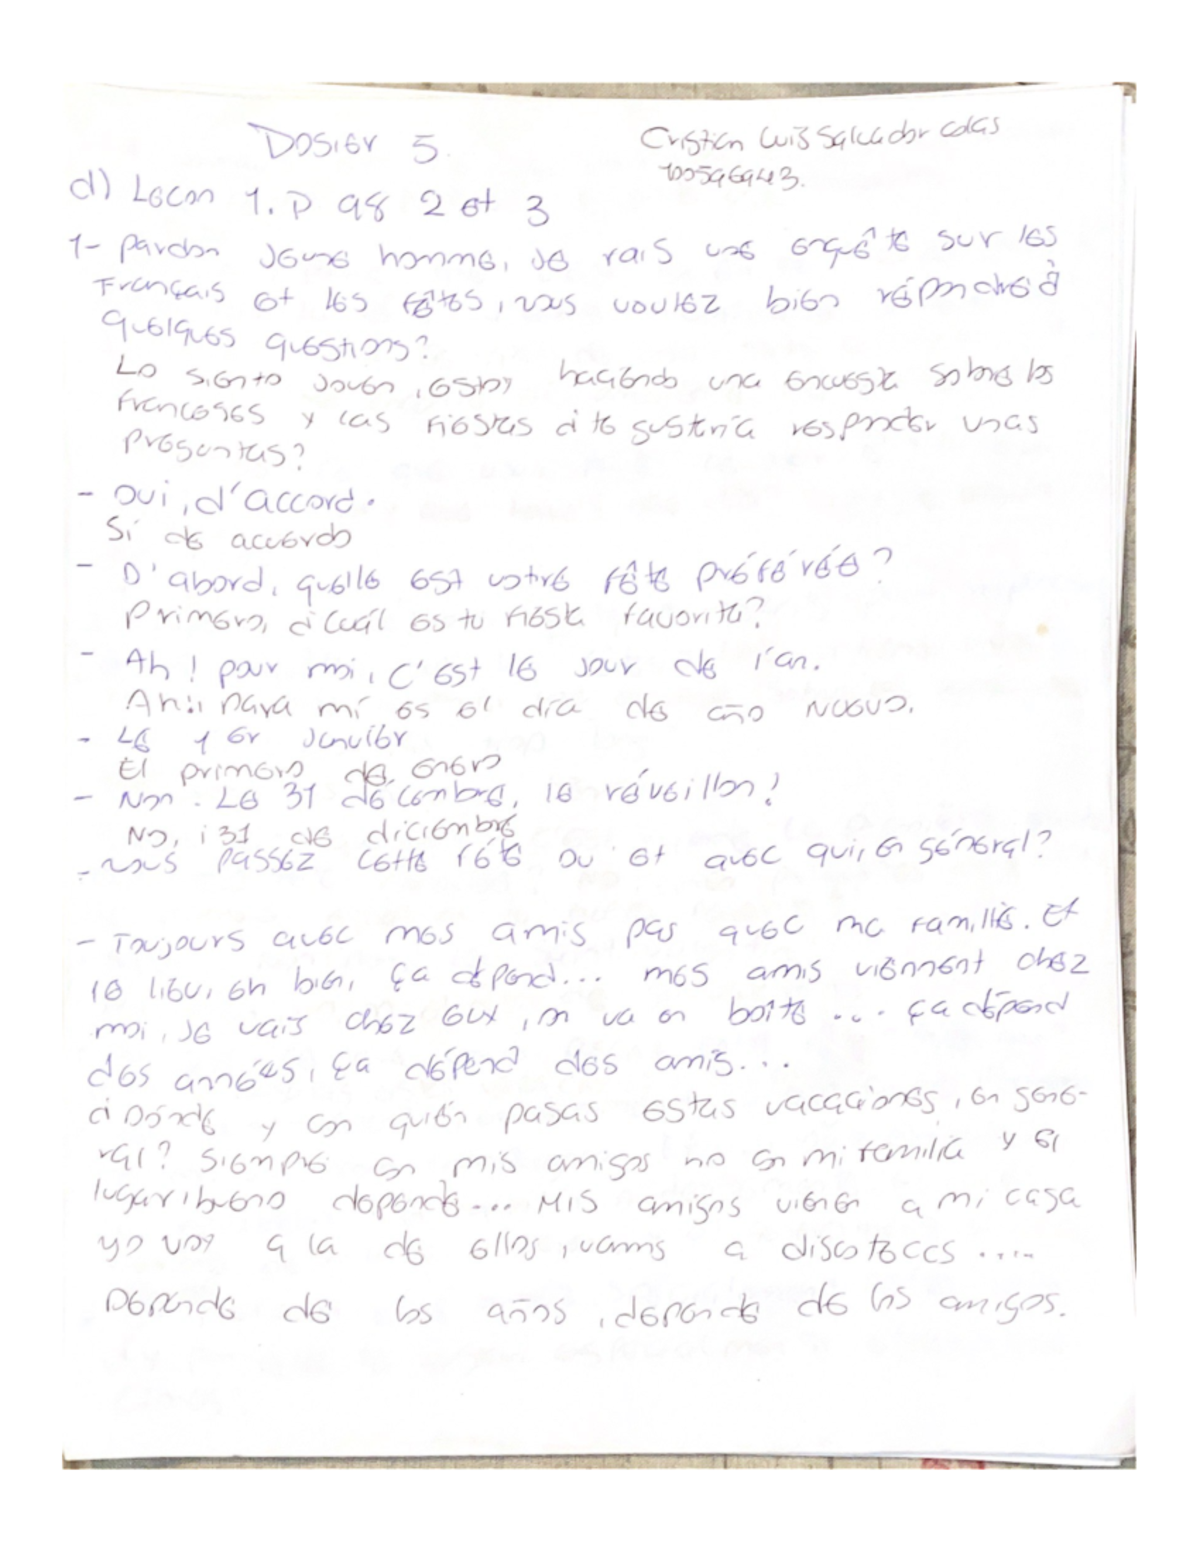 Dosier 5.
Cristian Luis Salvador
100596943.
d) Lecon 1. P 98 2 et 3
1- Pardon Jeune homme, Je fais une enquête sur les
Français et les fêtes, vous voulez bien répondre à
quelques questions?
Lo siento Joven, estoy haciendo una encuesta sobre los
Franceses y las fiestas ¿ te gustaría responder unas
Preguntas?
- Oui, d'accord.
Sí de acuerdo
- D'abord, quelle est votre fête préférée?
Primero, ¿ Cuál es tu fiesta favorita?
- Ah ! pour moi, C'est le Jour de l'an.
Ah:¡ Para mí es el día de año Nuevo.
- Le 1 er Janvier
El primero de enero
- Non. Le 31 décembre, le réveillon!
No, ¡ 31 de diciembre
- vous passez cette fête ou et avec qui, en général?
- Toujours avec mes amis pas avec ma famille. Et
le lieu, eh bien, ça dépend... mes amis viennent chez
moi, Je vais chez eux, on va en boîte ... ça dépend
des années, ça dépend des amis...
¿ Dónde y con quién pasas estas vacaciones, en gene-
ral? Siempre con mis amigos no con mi familia y el
lugar ¡bueno depende... Mis amigos vienen a mi casa
yo voy a la de ellos, vamos a discotecas .....
Depende de los años, depende de los amigos.